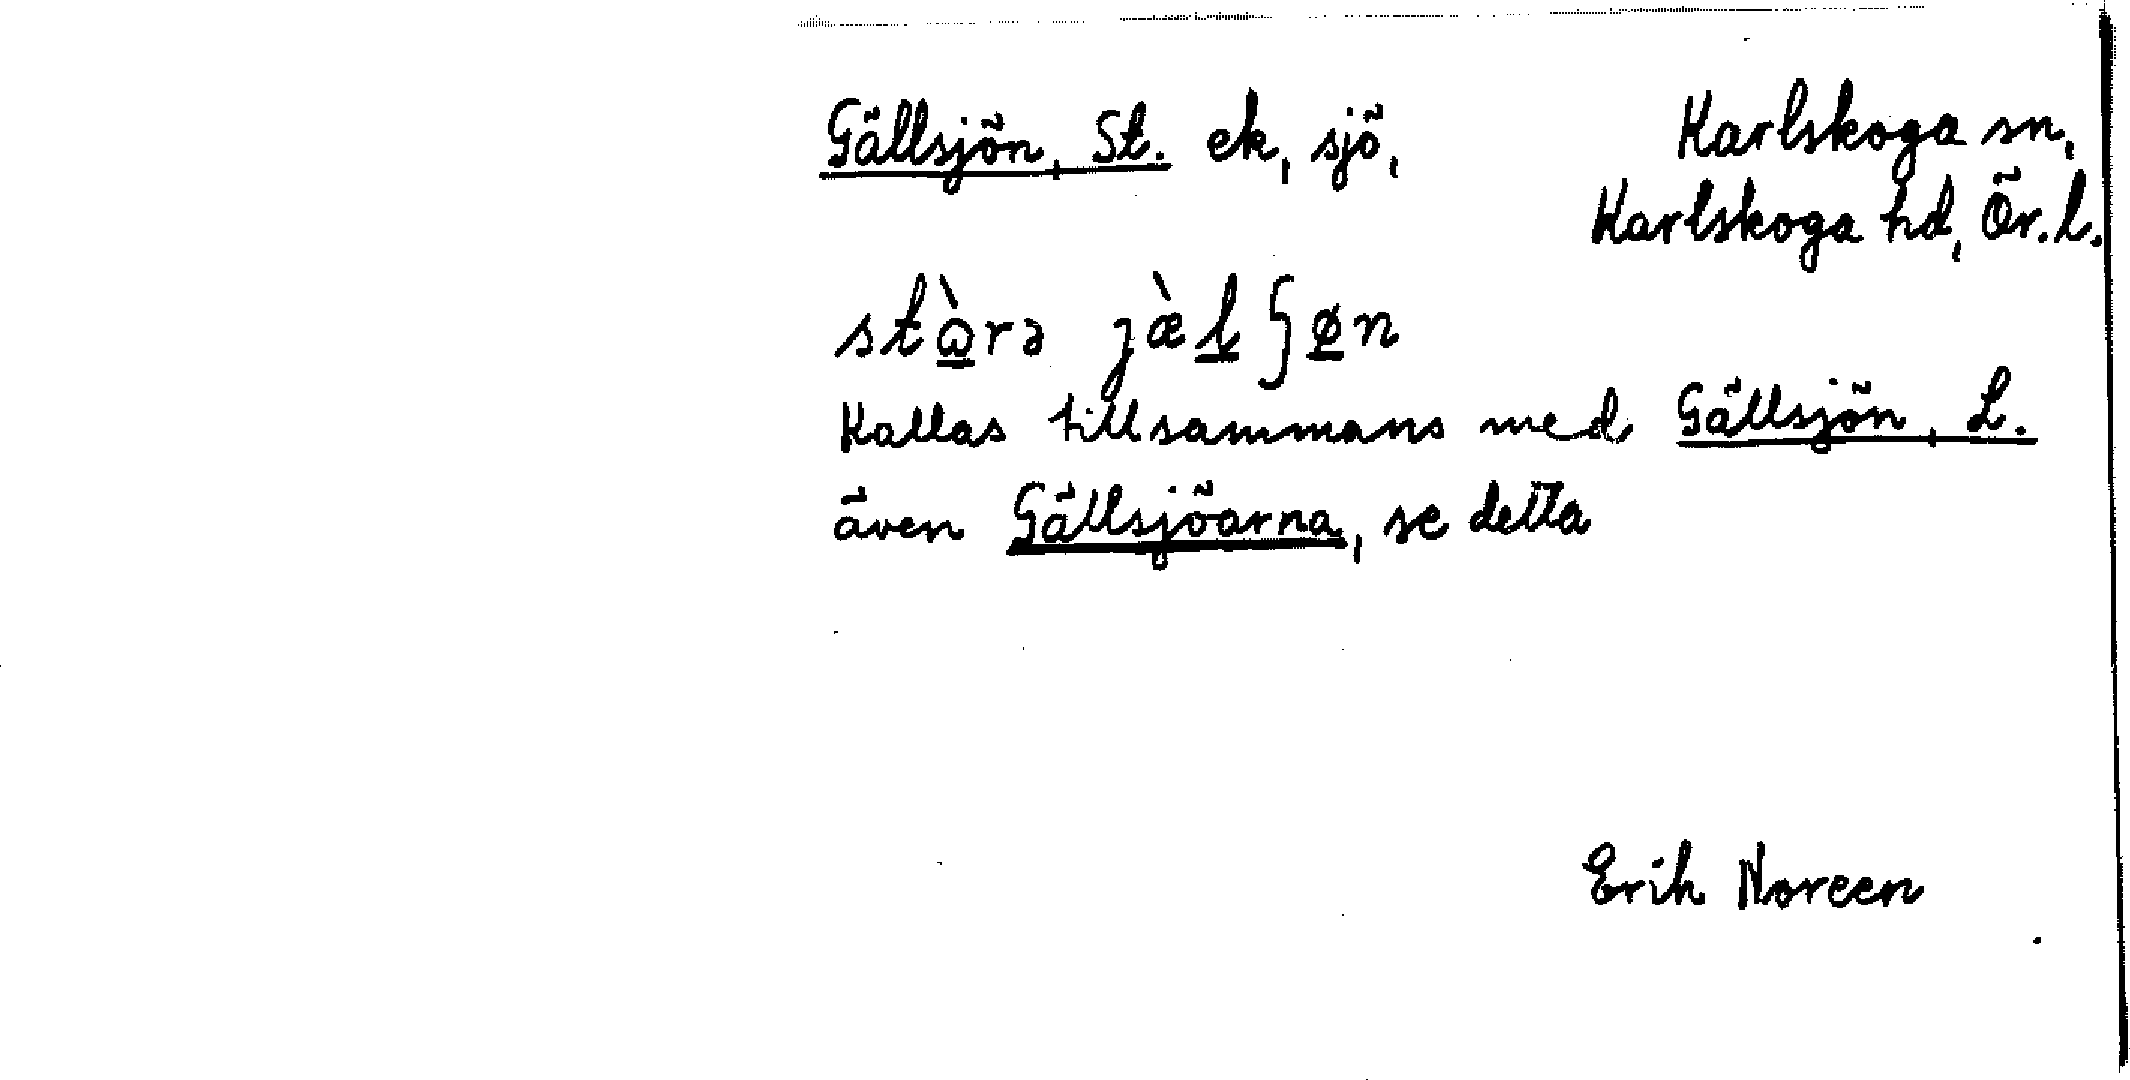 Gällsjön, St. ek, sjö, Karlskoga sn,
Karlskoga hd, Ör. l.
stὼ̲rə jæ̀l̲ʃø̲n
Kallas tillsammans med Gällsjön, L.
även Gällsjöarna, se detta
Erik Noreen